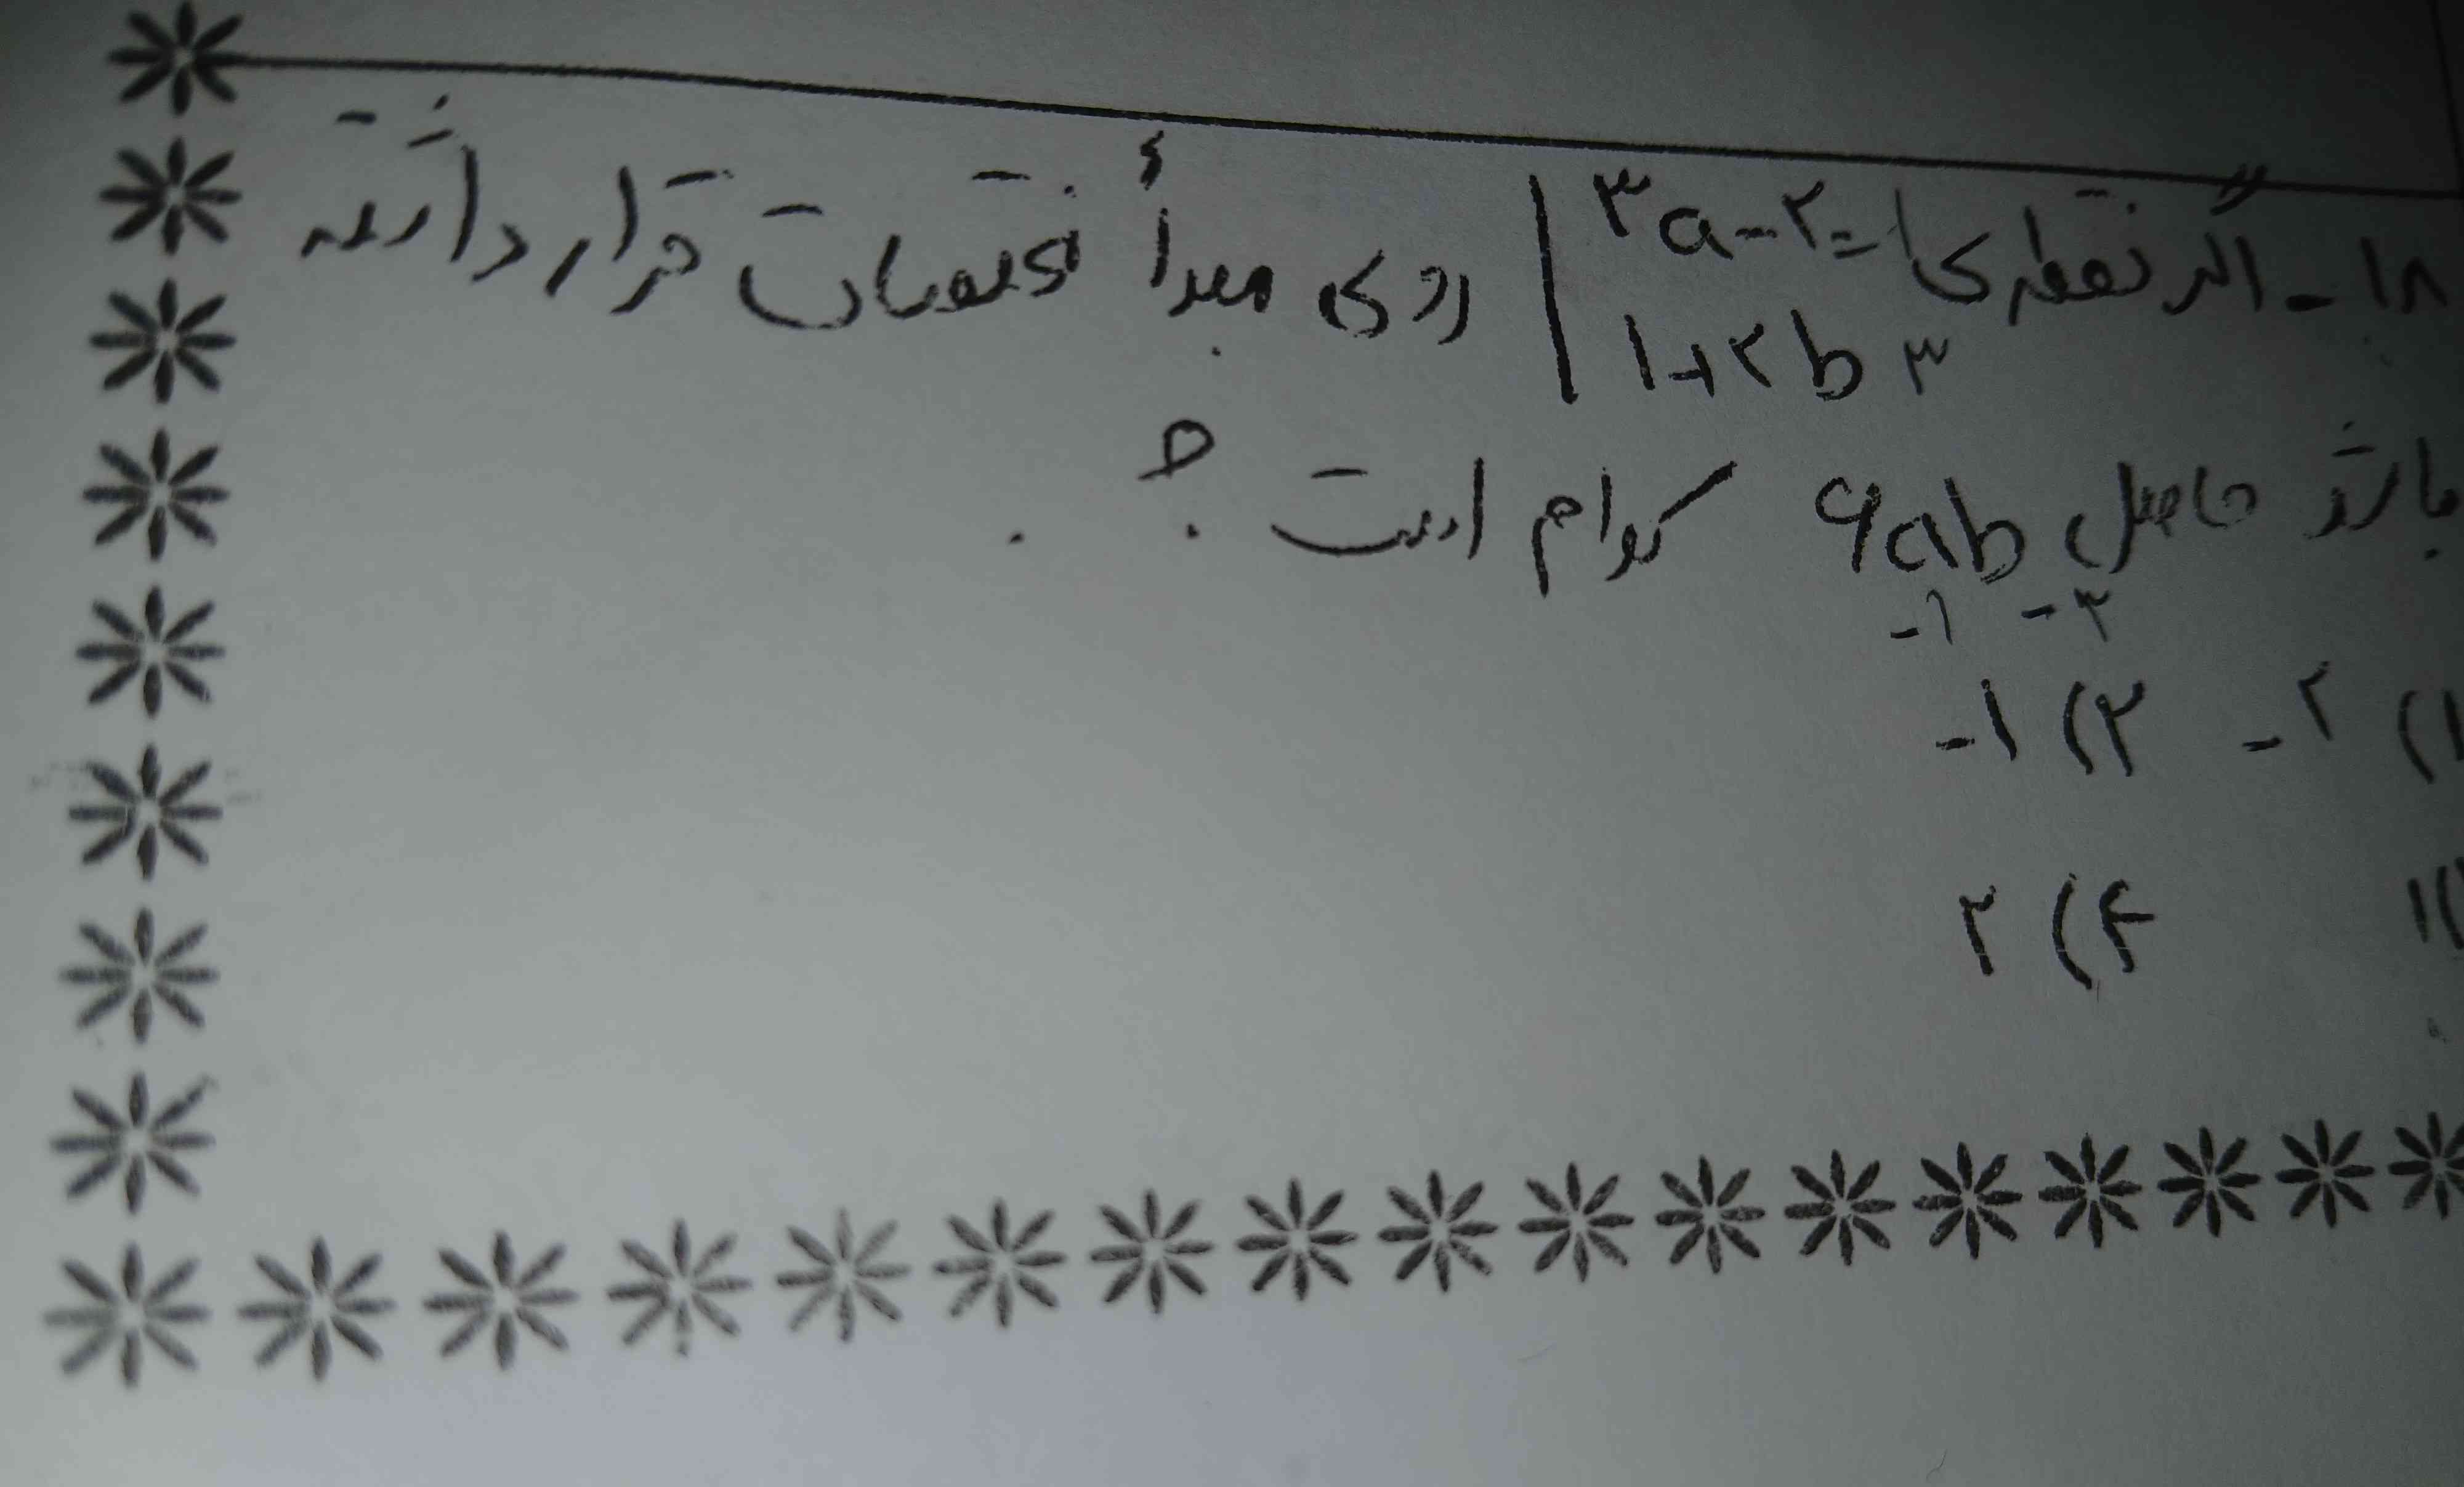 ۱۸ - اگر نقطه‌ی ۳a-۲=۱
۱+۲b ۳
روی مبدأ مختصات قرار داشته
باشد حاصل ۶ab کدام است ؟
-۱ -۲
۱) -۲ ۲) -۱
۴) ۲